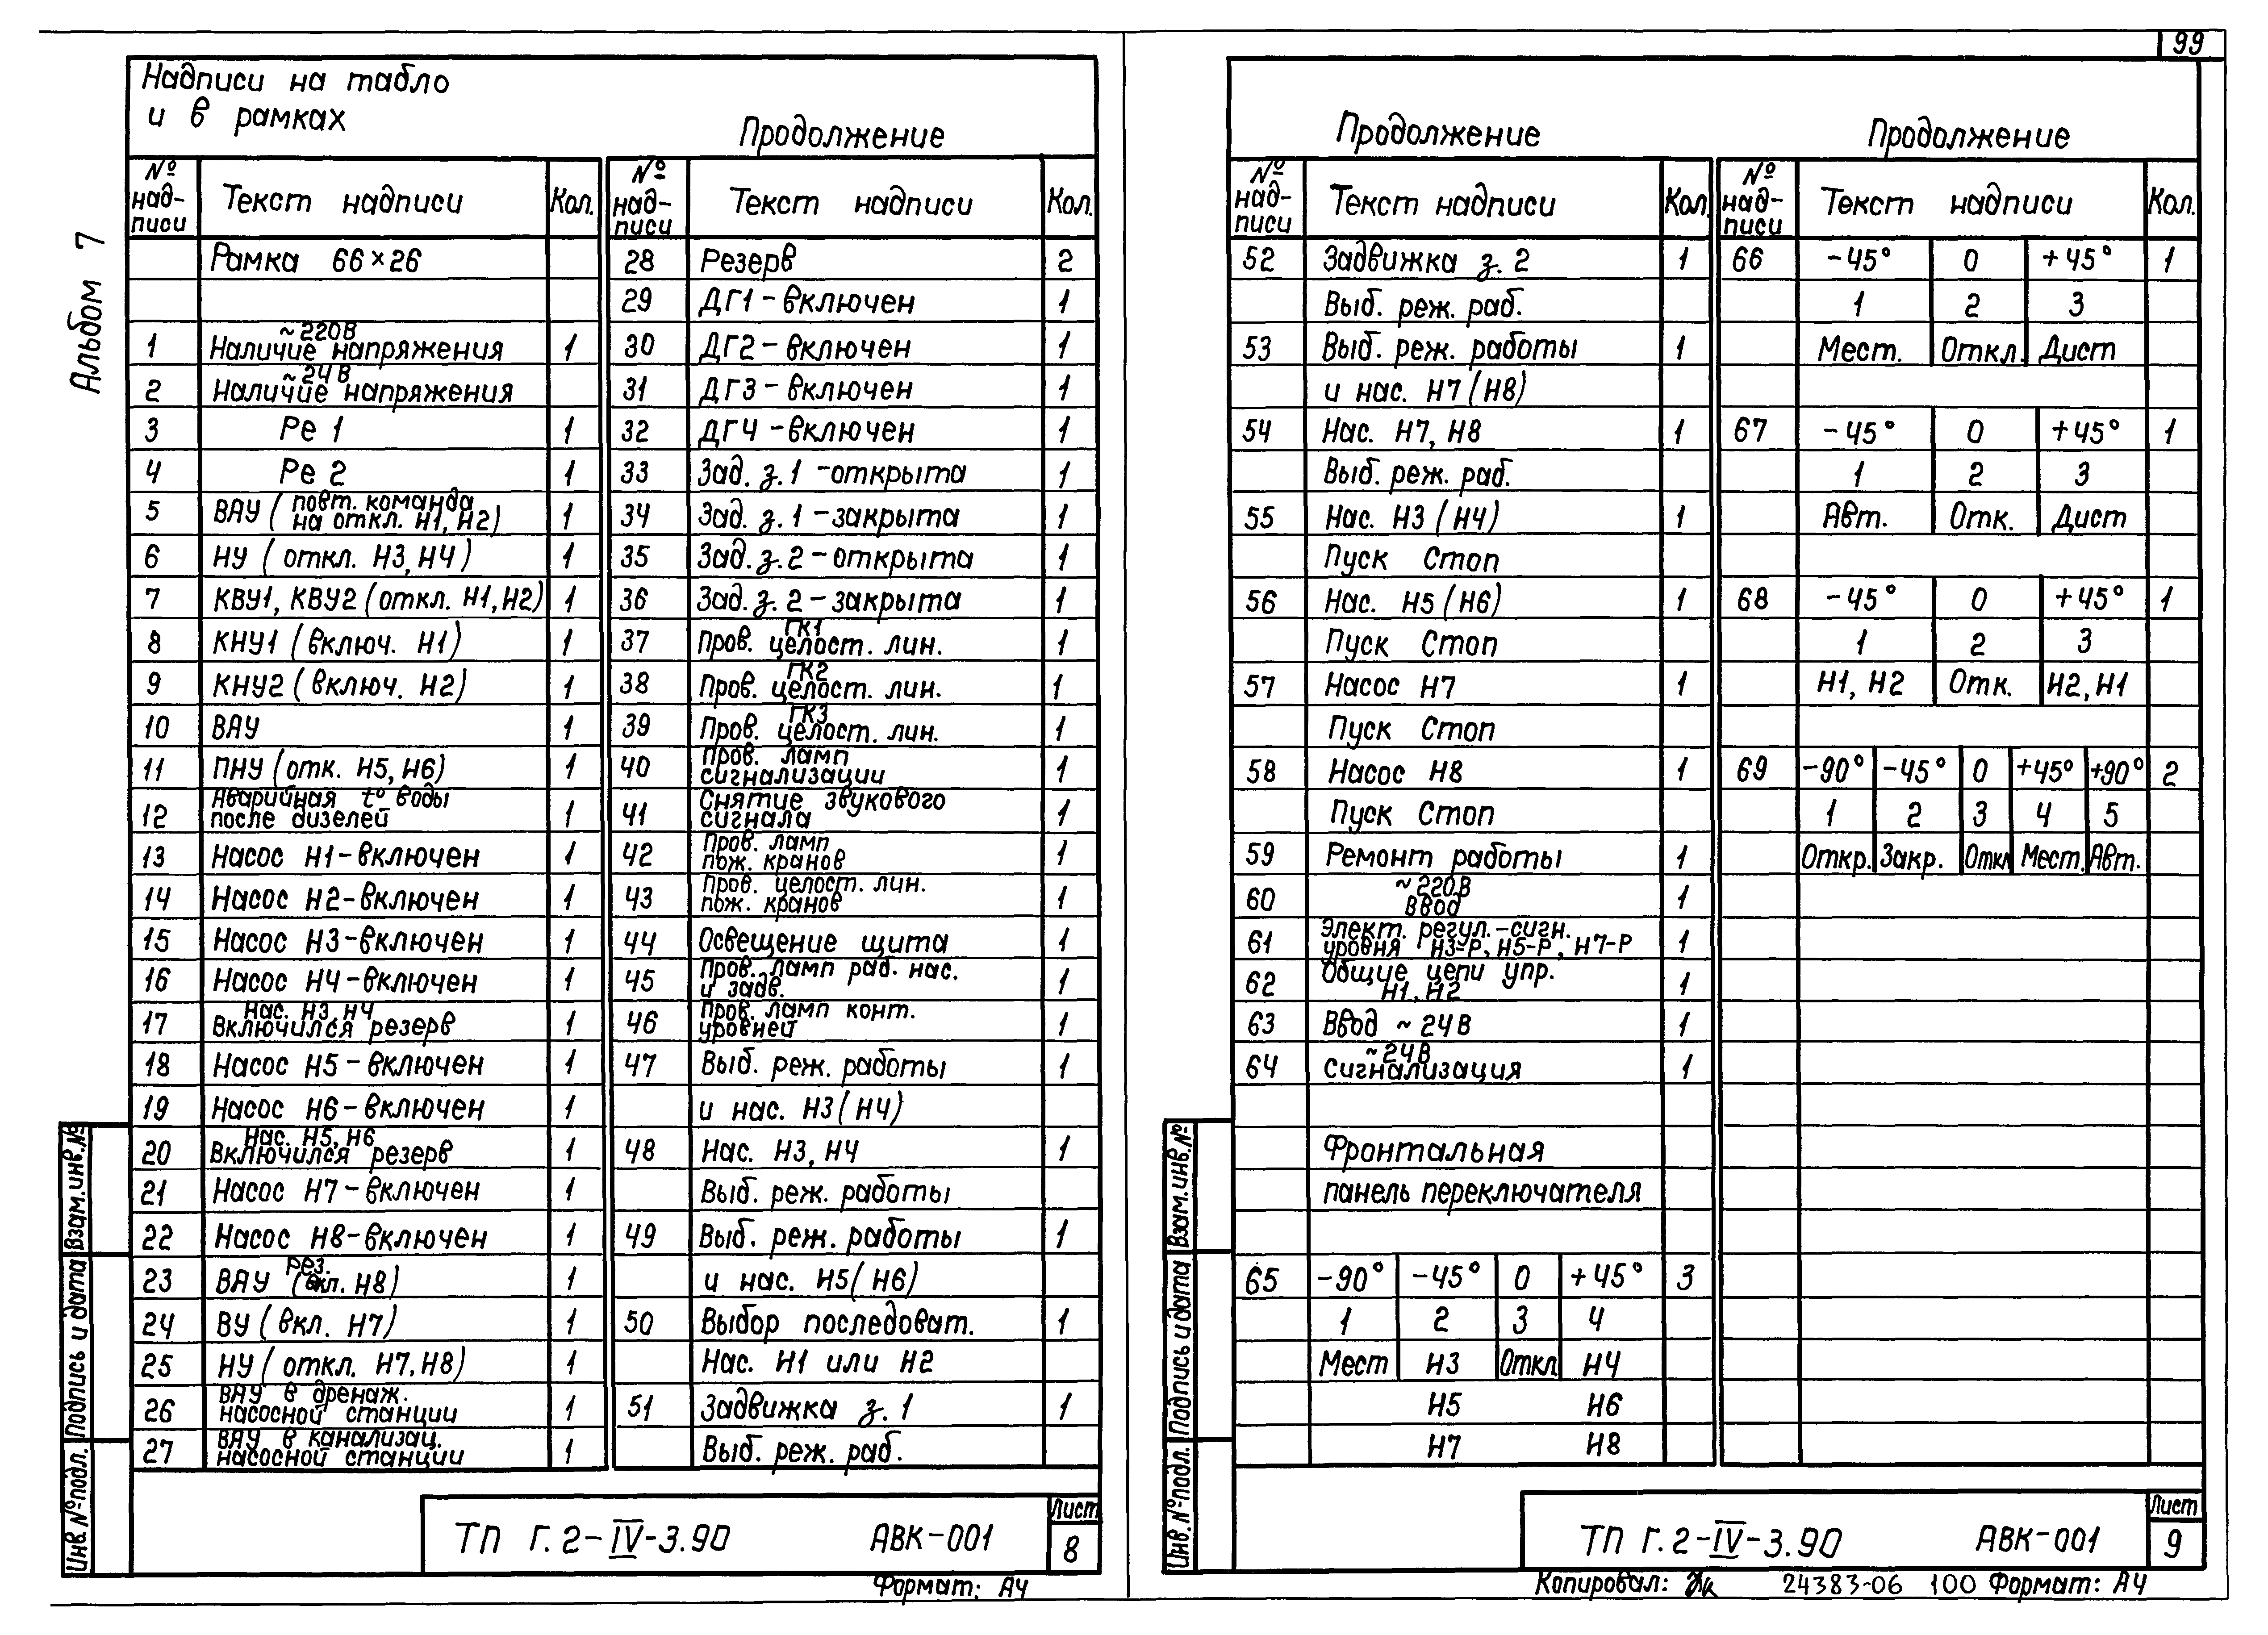 99
Альбом 7
Надписи на табло
и в рамках
Продолжение
№ надписи Текст надписи Кол.
Рамка 66×26
1 Наличие напряжения ~220В 1
2 Наличие напряжения ~24В
3 Ре 1 1
4 Ре 2 1
5 ВАУ (повт. команда на откл. Н1, Н2) 1
6 НУ (откл. Н3, Н4) 1
7 КВУ1, КВУ2 (откл. Н1, Н2) 1
8 КНУ1 (включ. Н1) 1
9 КНУ2 (включ. Н2) 1
10 ВАУ 1
11 ПНУ (отк. Н5, Н6) 1
12 Аварийная t° воды после дизелей 1
13 Насос Н1-включен 1
14 Насос Н2-включен 1
15 Насос Н3-включен 1
16 Насос Н4-включен 1
17 Нас. Н3, Н4 Включился резерв 1
18 Насос Н5-включен 1
19 Насос Н6-включен 1
20 Нас. Н5, Н6 Включился резерв 1
21 Насос Н7-включен 1
22 Насос Н8-включен 1
23 ВАУ рез. (вкл. Н8) 1
24 ВУ (вкл. Н7) 1
25 НУ (откл. Н7, Н8) 1
26 ВАУ в дренаж. насосной станции 1
27 ВАУ в канализац. насосной станции 1
№ надписи Текст надписи Кол.
28 Резерв 2
29 ДГ1-включен 1
30 ДГ2-включен 1
31 ДГ3-включен 1
32 ДГ4-включен 1
33 Зад. з.1-открыта 1
34 Зад. з.1-закрыта 1
35 Зад. з.2-открыта 1
36 Зад. з.2-закрыта 1
37 Пров. целост. лин. ГК1 1
38 Пров. целост. лин. ГК2 1
39 Пров. целост. лин. ГК3 1
40 Пров. ламп сигнализации 1
41 Снятие звукового сигнала 1
42 Пров. ламп пож. кранов 1
43 Пров. целост. лин. пож. кранов 1
44 Освещение щита 1
45 Пров. ламп раб. нас. и задв. 1
46 Пров. ламп конт. уровней 1
47 Выб. реж. работы 1
и нас. Н3 (Н4)
48 Нас. Н3, Н4 1
Выб. реж. работы
49 Выб. реж. работы 1
и нас. Н5 (Н6)
50 Выбор последоват. 1
Нас. Н1 или Н2
51 Задвижка з. 1 1
Выб. реж. раб.
Инв. № подл. Подпись и дата Взам. инв. №
ТП Г.2-IV-3.90 АВК-001
Лист
8
Формат: А4
Продолжение
№ надписи Текст надписи Кол.
52 Задвижка з. 2 1
Выб. реж. раб.
53 Выб. реж. работы 1
и нас. Н7 (Н8)
54 Нас. Н7, Н8 1
Выб. реж. раб.
55 Нас. Н3 (Н4) 1
Пуск Стоп
56 Нас. Н5 (Н6) 1
Пуск Стоп
57 Насос Н7 1
Пуск Стоп
58 Насос Н8 1
Пуск Стоп
59 Ремонт работы 1
60 ~220В Ввод 1
61 Элект. регул.-сигн. уровня Н3-Р, Н5-Р, Н7-Р 1
62 Общие цепи упр. Н1, Н2 1
63 Ввод ~24В 1
64 ~24В Сигнализация 1
Фронтальная
панель переключателя
65 -90° -45° 0 +45° 3
1 2 3 4
Мест Н3 Откл Н4
Н5 Н6
Н7 Н8
Продолжение
№ надписи Текст надписи Кол.
66 -45° 0 +45° 1
1 2 3
Мест. Откл. Дист
67 -45° 0 +45° 1
1 2 3
Авт. Отк. Дист
68 -45° 0 +45° 1
1 2 3
Н1, Н2 Отк. Н2, Н1
69 -90° -45° 0 +45° +90° 2
1 2 3 4 5
Откр. Закр. Откл Мест. Авт.
Инв. № подл. Подпись и дата Взам. инв. №
ТП Г.2-IV-3.90 АВК-001
Лист
9
Копировал: 24383-06 100 Формат: А4